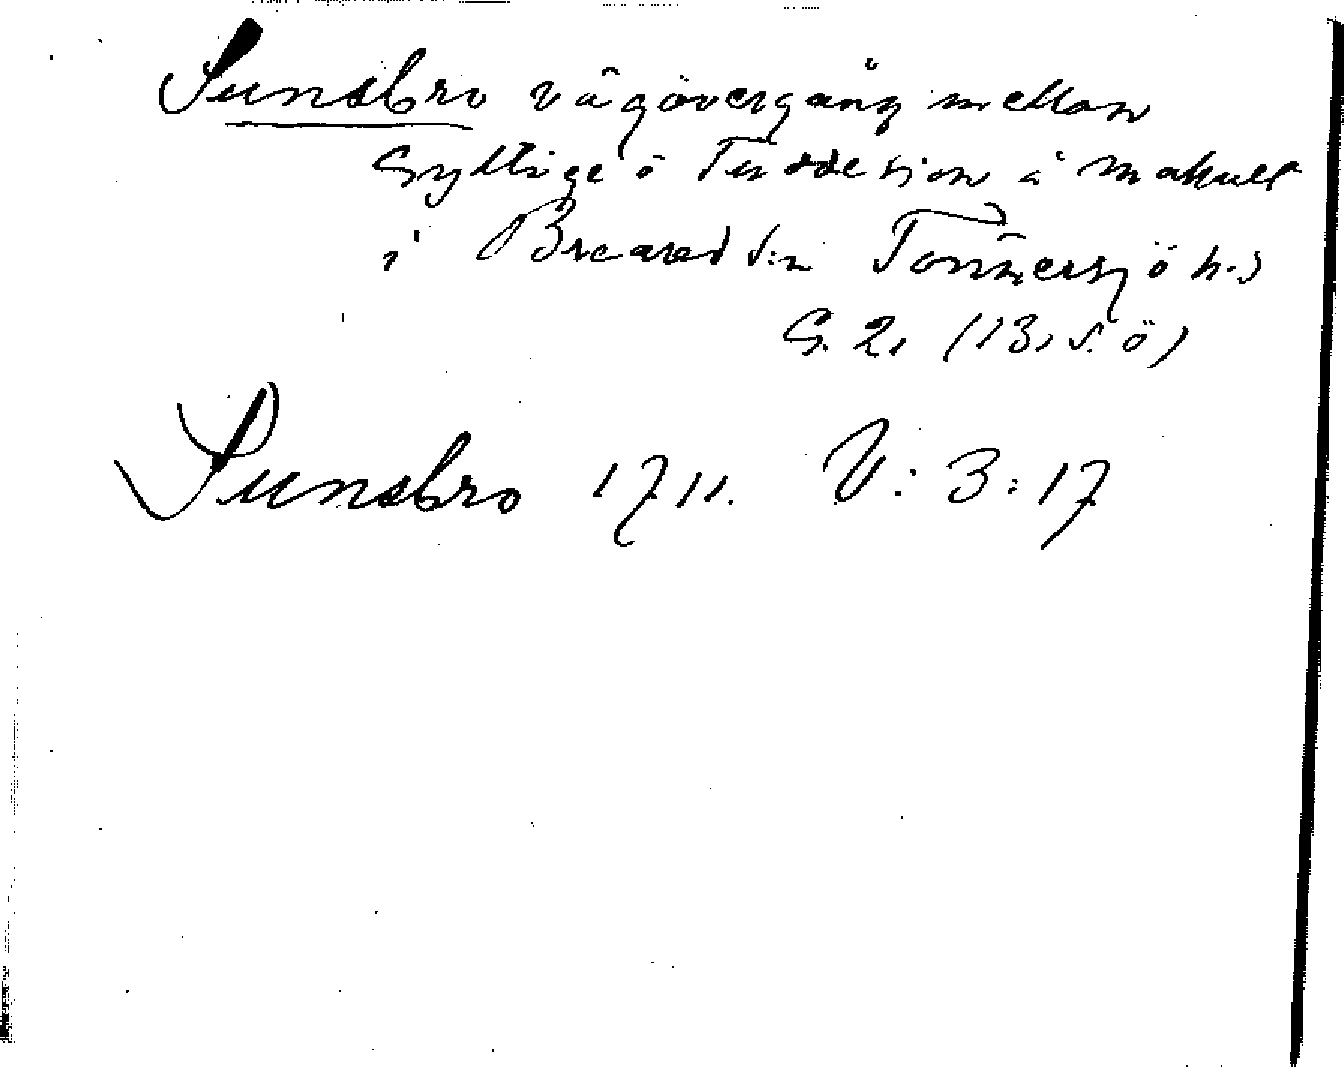 Sunsbro vägövergång mellan
Gyltige o Tuddesjön å Mahult
i Breared s:n Tönnersjö h.d
G. 2, (13, s. ö)
Sunsbro 1711. V: 3: 17